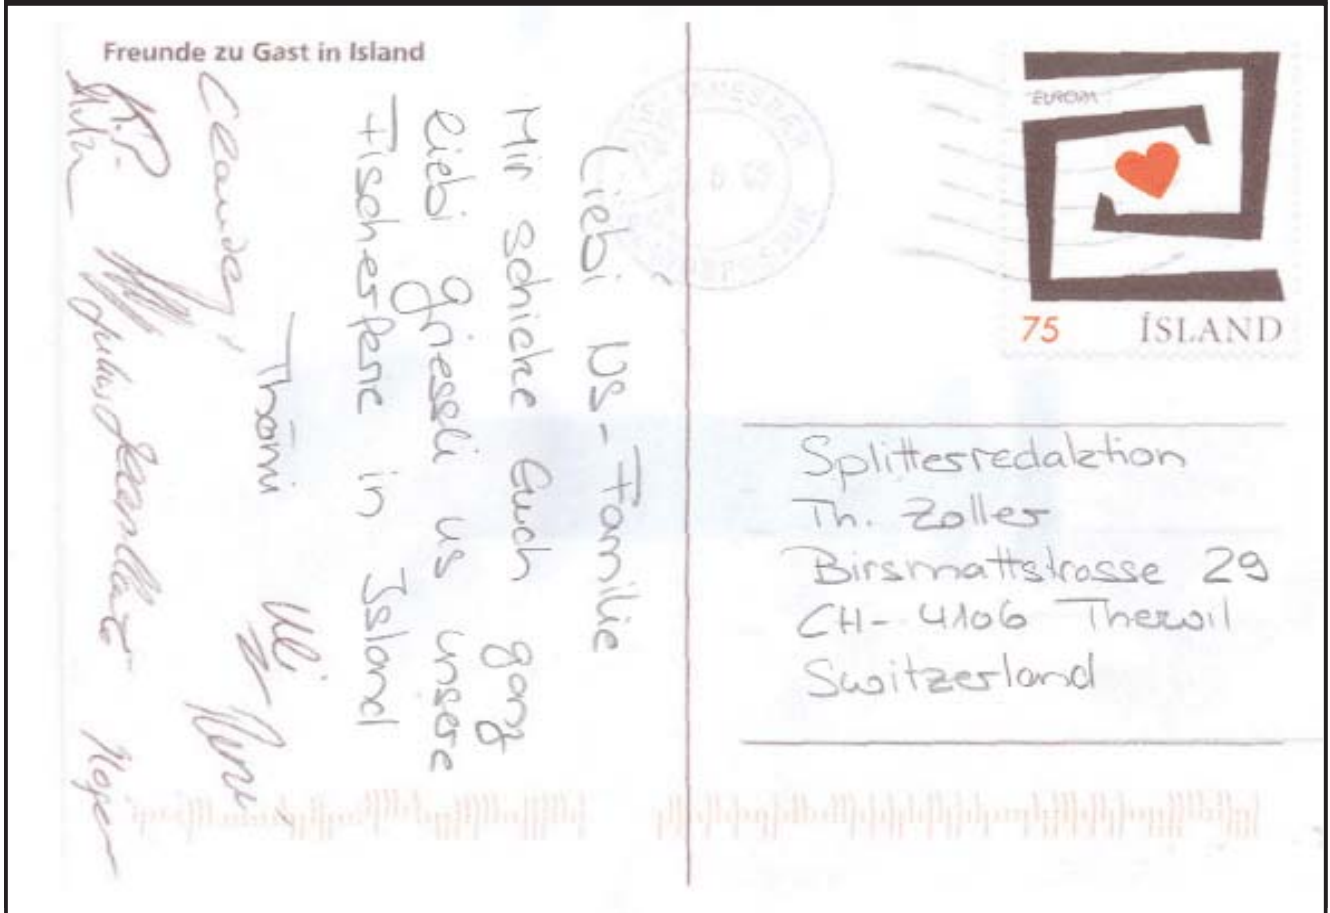 Freunde zu Gast in Island
Liebi US-Familie
Mir schicke Euch ganz
liebi Griessli us unsere
Fischerferie in Island
Thömi
Ueli
Claude,
K.P.
Julius
Holger
EUROPA
75 ÍSLAND
Splitterredaktion
Th. Zoller
Birsmattstrasse 29
CH-4106 Therwil
Switzerland